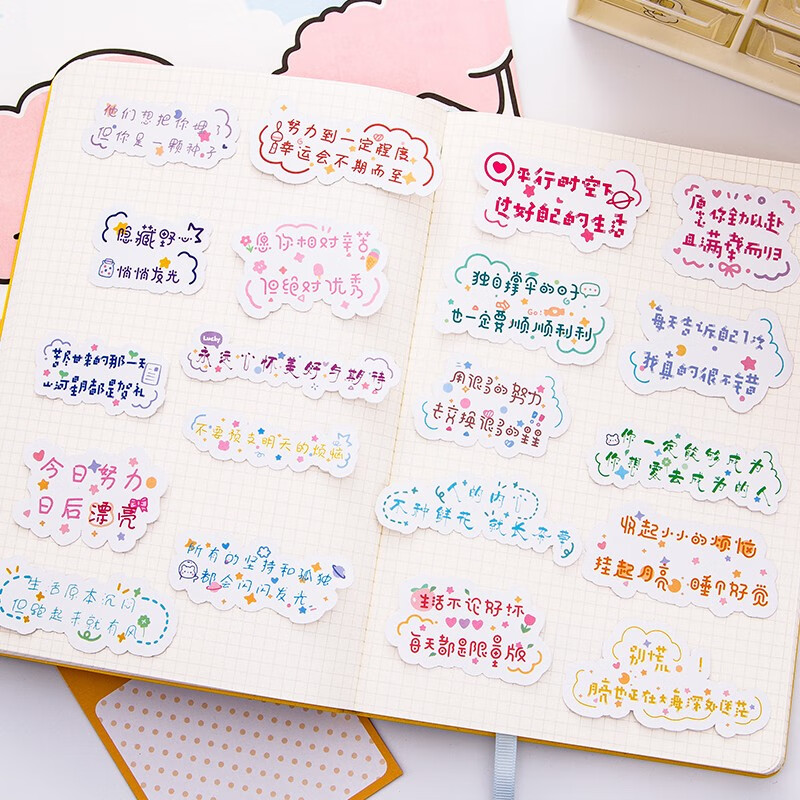 他们想把你埋了
但你是一颗种子
努力到一定程度
幸运会不期而至
隐藏野心
悄悄发光
愿你相对辛苦
但绝对优秀
苦尽甘来的那一天
山河星月都是贺礼
Lucky
永远心怀美好与期待
不要预支明天的烦恼
今日努力
日后漂亮
所有的坚持和孤独
都会闪闪发光
生活原本沉闷
但跑起来就有风
平行时空下
过好自己的生活
愿你全力以赴
且满载而归
独自撑伞的日子
Go!
也一定要顺顺利利
每天告诉自己1次
我真的很不错
用很多的努力
去交换很多的星星
你一定能够成为
你想要去成为的人
人的内心
不种鲜花 就长杂草
收起小小的烦恼
挂起月亮 睡个好觉
生活不论好坏
每天都是限量版
别慌!
月亮也正在大海深处迷茫